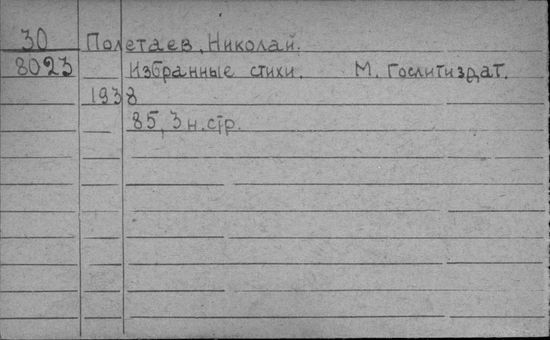 30 Полетаев, Николай.
8023 Избранные стихи. М. Гослитиздат.
1938
85, 3 н. стр.